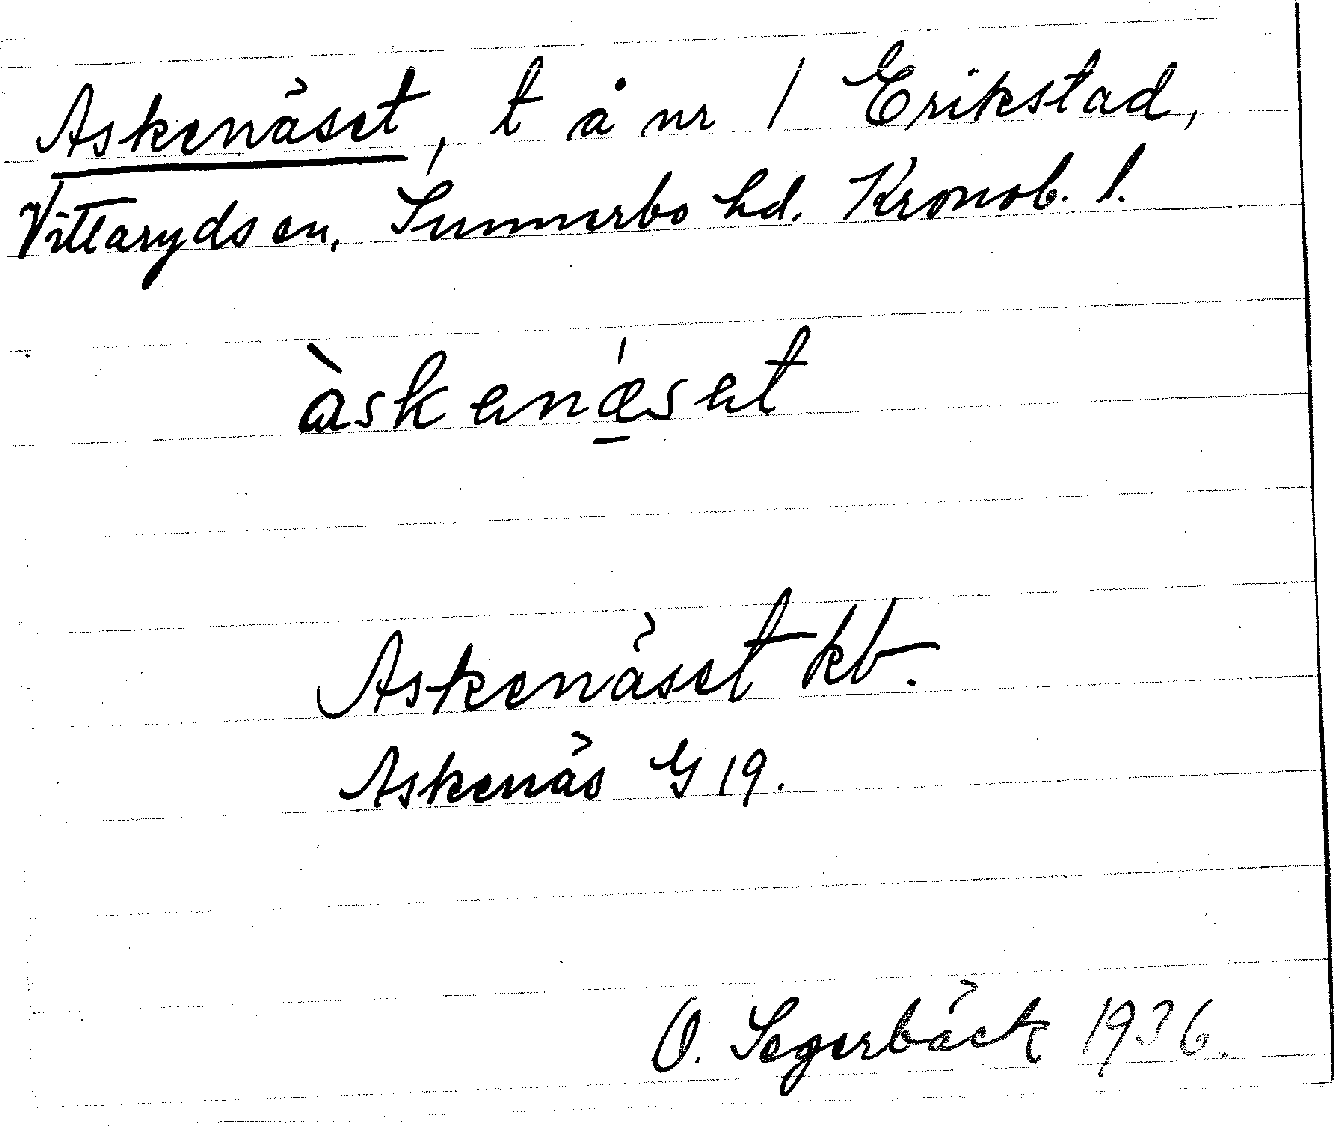 Askenäset, t å nr 1 Erikstad,
Vittaryds sn, Sunnerbo hd. Kronob. l.
àskenǽ̱set
Askenäset kb.
Askenäs G 19.
O. Segerbäck 1936.